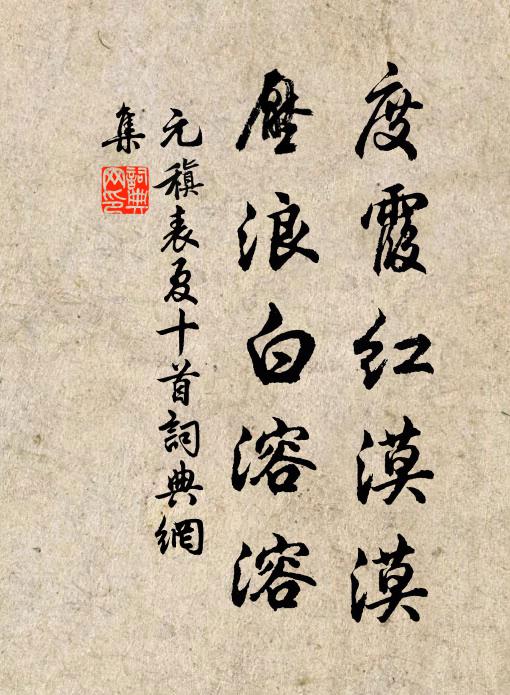 度霞紅漠漠
壓浪白溶溶
元稹表夏十首詞典網
集
詞典
网印